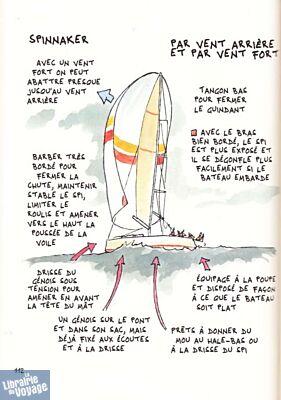 SPINNAKER
PAR VENT ARRIÈRE
ET PAR VENT FORT
AVEC UN VENT
FORT ON PEUT
ABATTRE PRESQUE
JUSQU'AU VENT
ARRIÈRE
TANGON BAS
POUR FERMER
LE GUINDANT
AVEC LE BRAS
BIEN BORDÉ, LE SPI
EST PLUS EXPOSÉ ET
IL SE DÉGONFLE PLUS
FACILEMENT SI LE
BATEAU EMBARDE
BARBER TRÈS
BORDÉ POUR
FERMER LA
CHUTE, MAINTENIR
STABLE LE SPI,
LIMITER LE
ROULIS ET AMENER
VERS LE HAUT LA
POUSSÉE DE LA
VOILE
DRISSE DU
GÉNOIS SOUS
TENSION POUR
AMENER EN AVANT
LA TÊTE DU MÂT
ÉQUIPAGE À LA POUPE
ET DISPOSÉ DE FAÇON
À CE QUE LE BATEAU
SOIT PLAT
UN GÉNOIS SUR LE PONT
ET DANS SON SAC, MAIS
DÉJÀ FIXÉ AUX ÉCOUTES
ET À LA DRISSE
PRÊTS À DONNER DU
MOU AU HALE-BAS OU
À LA DRISSE DU SPI
112
La Librairie
du Voyage